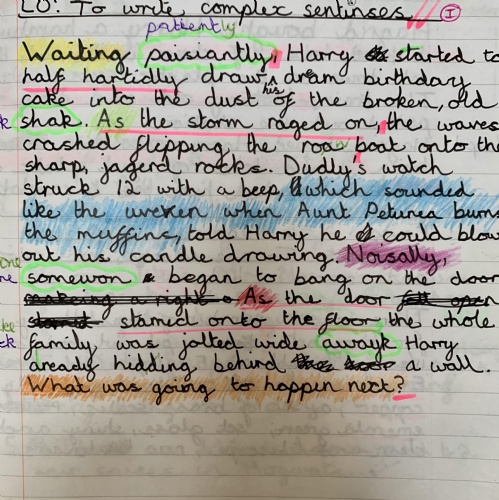 LO: To write complex sentinses.
patiently
Waiting paisiantly, Harry started to
half hartidly draw his dream birthday
cake into the dust of the broken, old
shak. As the storm raged on, the waves
crashed flipping the row boat onto the
sharp, jagerd rocks. Dudly's watch
struck 12 with a beep, which sounded
like the uveken when Aunt Petunea burns
the muffins, told Harry he could blow
out his candle drawing. Noisally,
somewon began to bang on the door
As the door
slamed onto the floor, the whole
family was jolted wide awayk Harry
already hidding behind a wall.
What was going to happen next?